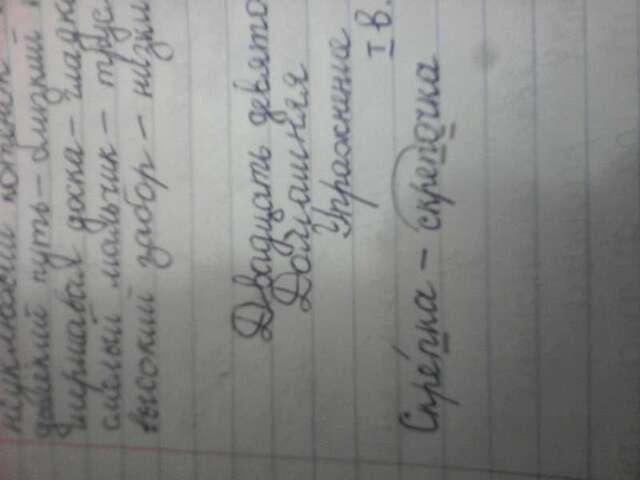 далёкий путь – близкий
шершавая доска – гладк
смелый мальчик – трус
высокий забор – низки
Двадцать девято
Домашняя
Упражнение
I в.
Скре́пка – скрепочка